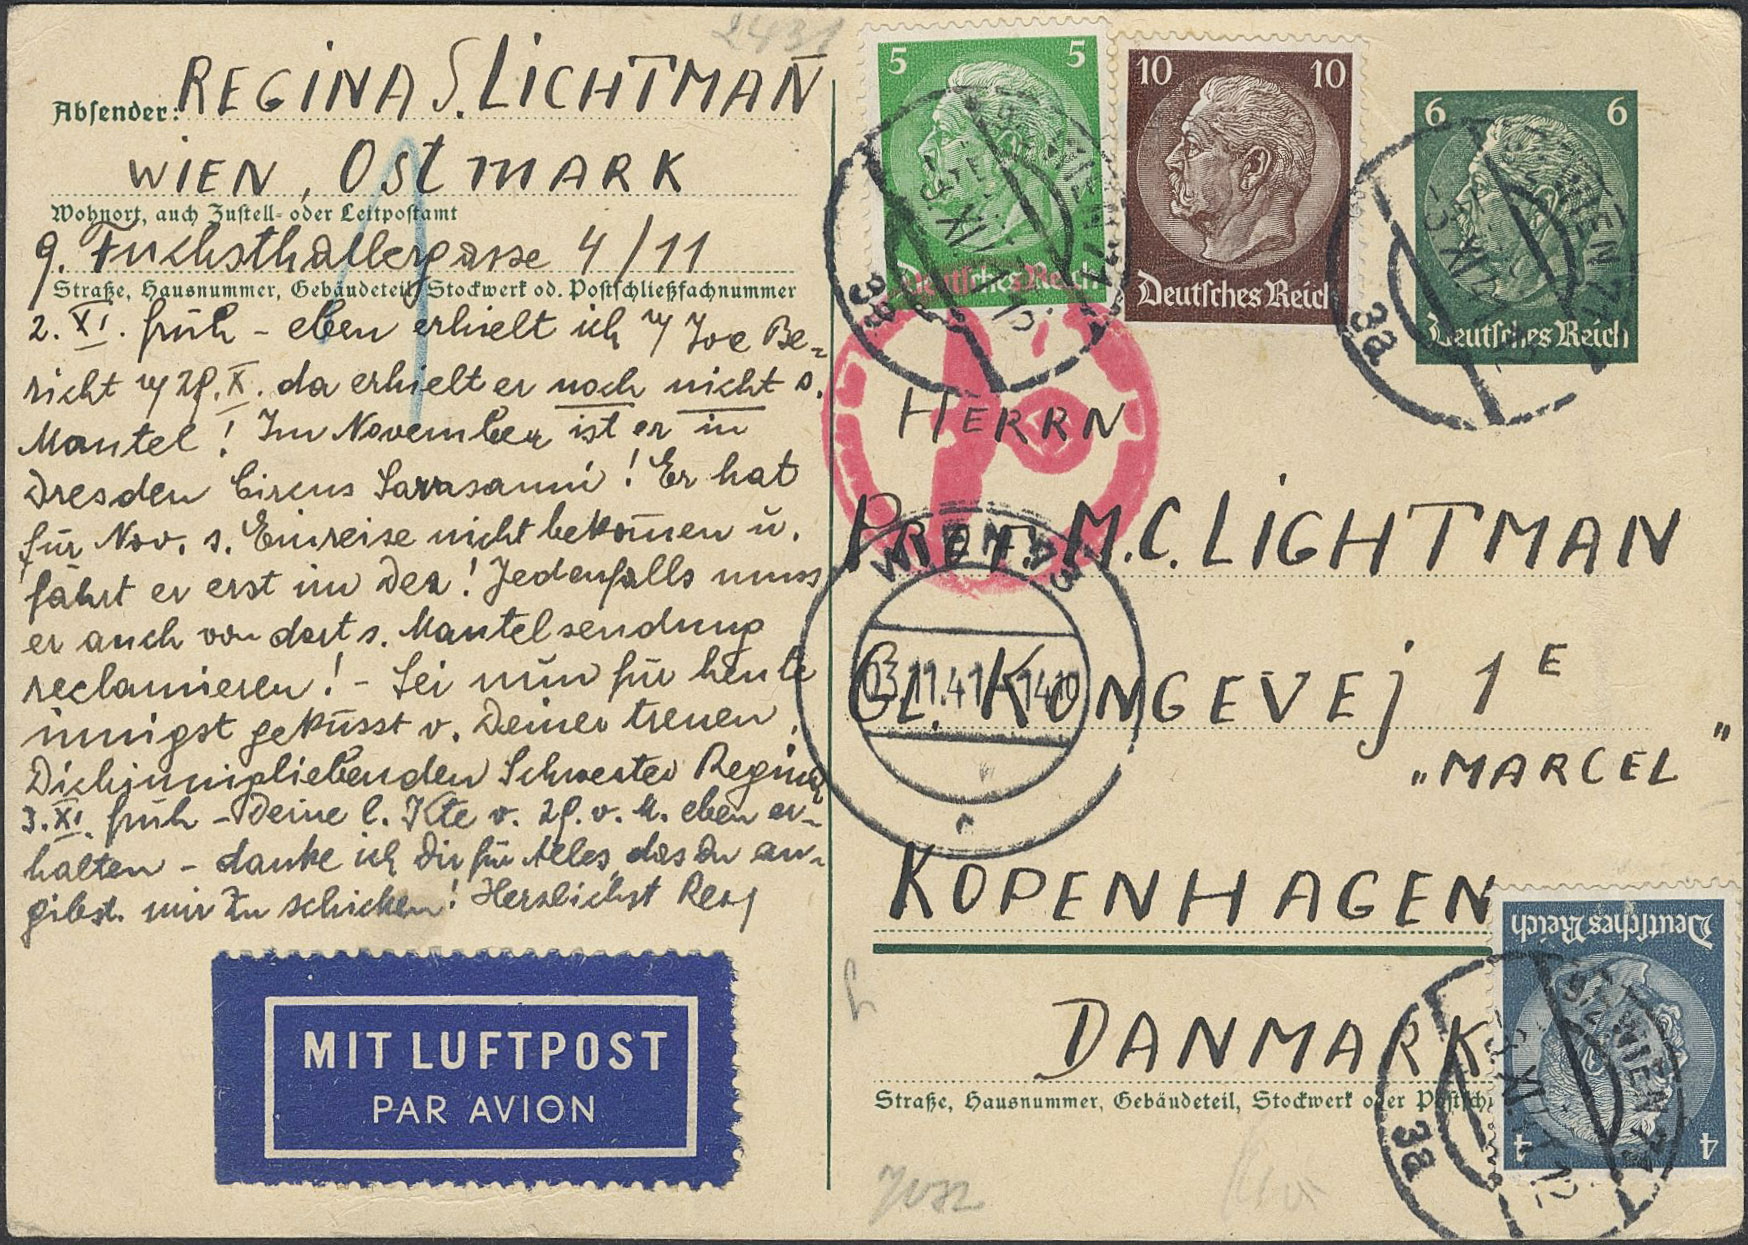 2431
Absender: REGINA S. LICHTMAN
WIEN, OSTMARK
Wohnort, auch Zustell- oder Leitpostamt
9. Fuchsthallergasse 4/11
Straße, Hausnummer, Gebäudeteil, Stockwerk od. Postschließfachnummer
2. XI. früh - eben erhielt ich v Joe Be-
richt v 29. X. da erhielt er noch nicht s.
Mantel! Im November ist er in
Dresden Circus Sarrasani! Er hat
für Nov. s. Einreise nicht bekommen u.
fährt er erst im Dez! Jedenfalls muss
er auch von dort s. Mantelsendung
reclamieren! - Sei nun für heute
innigst geküsst v. Deiner treuen,
Dich innigliebenden Schwester Regina
3. XI. früh - Deine l. Kte v. 29. v. M. eben er-
halten - danke ich Dir für Alles, das Du an-
gibst mir zu schicken! Herzlichst
MIT LUFTPOST
PAR AVION
5 5
Deutsches Reich
10 10
Deutsches Reich
6 6
Deutsches Reich
WIEN
3a
WIEN
3a
HERRN
PROF. M. C. LIGHTMAN
WIEN
03.11.41
GL. KONGEVEJ 1 E
„MARCEL"
KOPENHAGEN
DANMARK
Straße, Hausnummer, Gebäudeteil, Stockwerk oder Postsch
Deutsches Reich
4 4
WIEN
3a